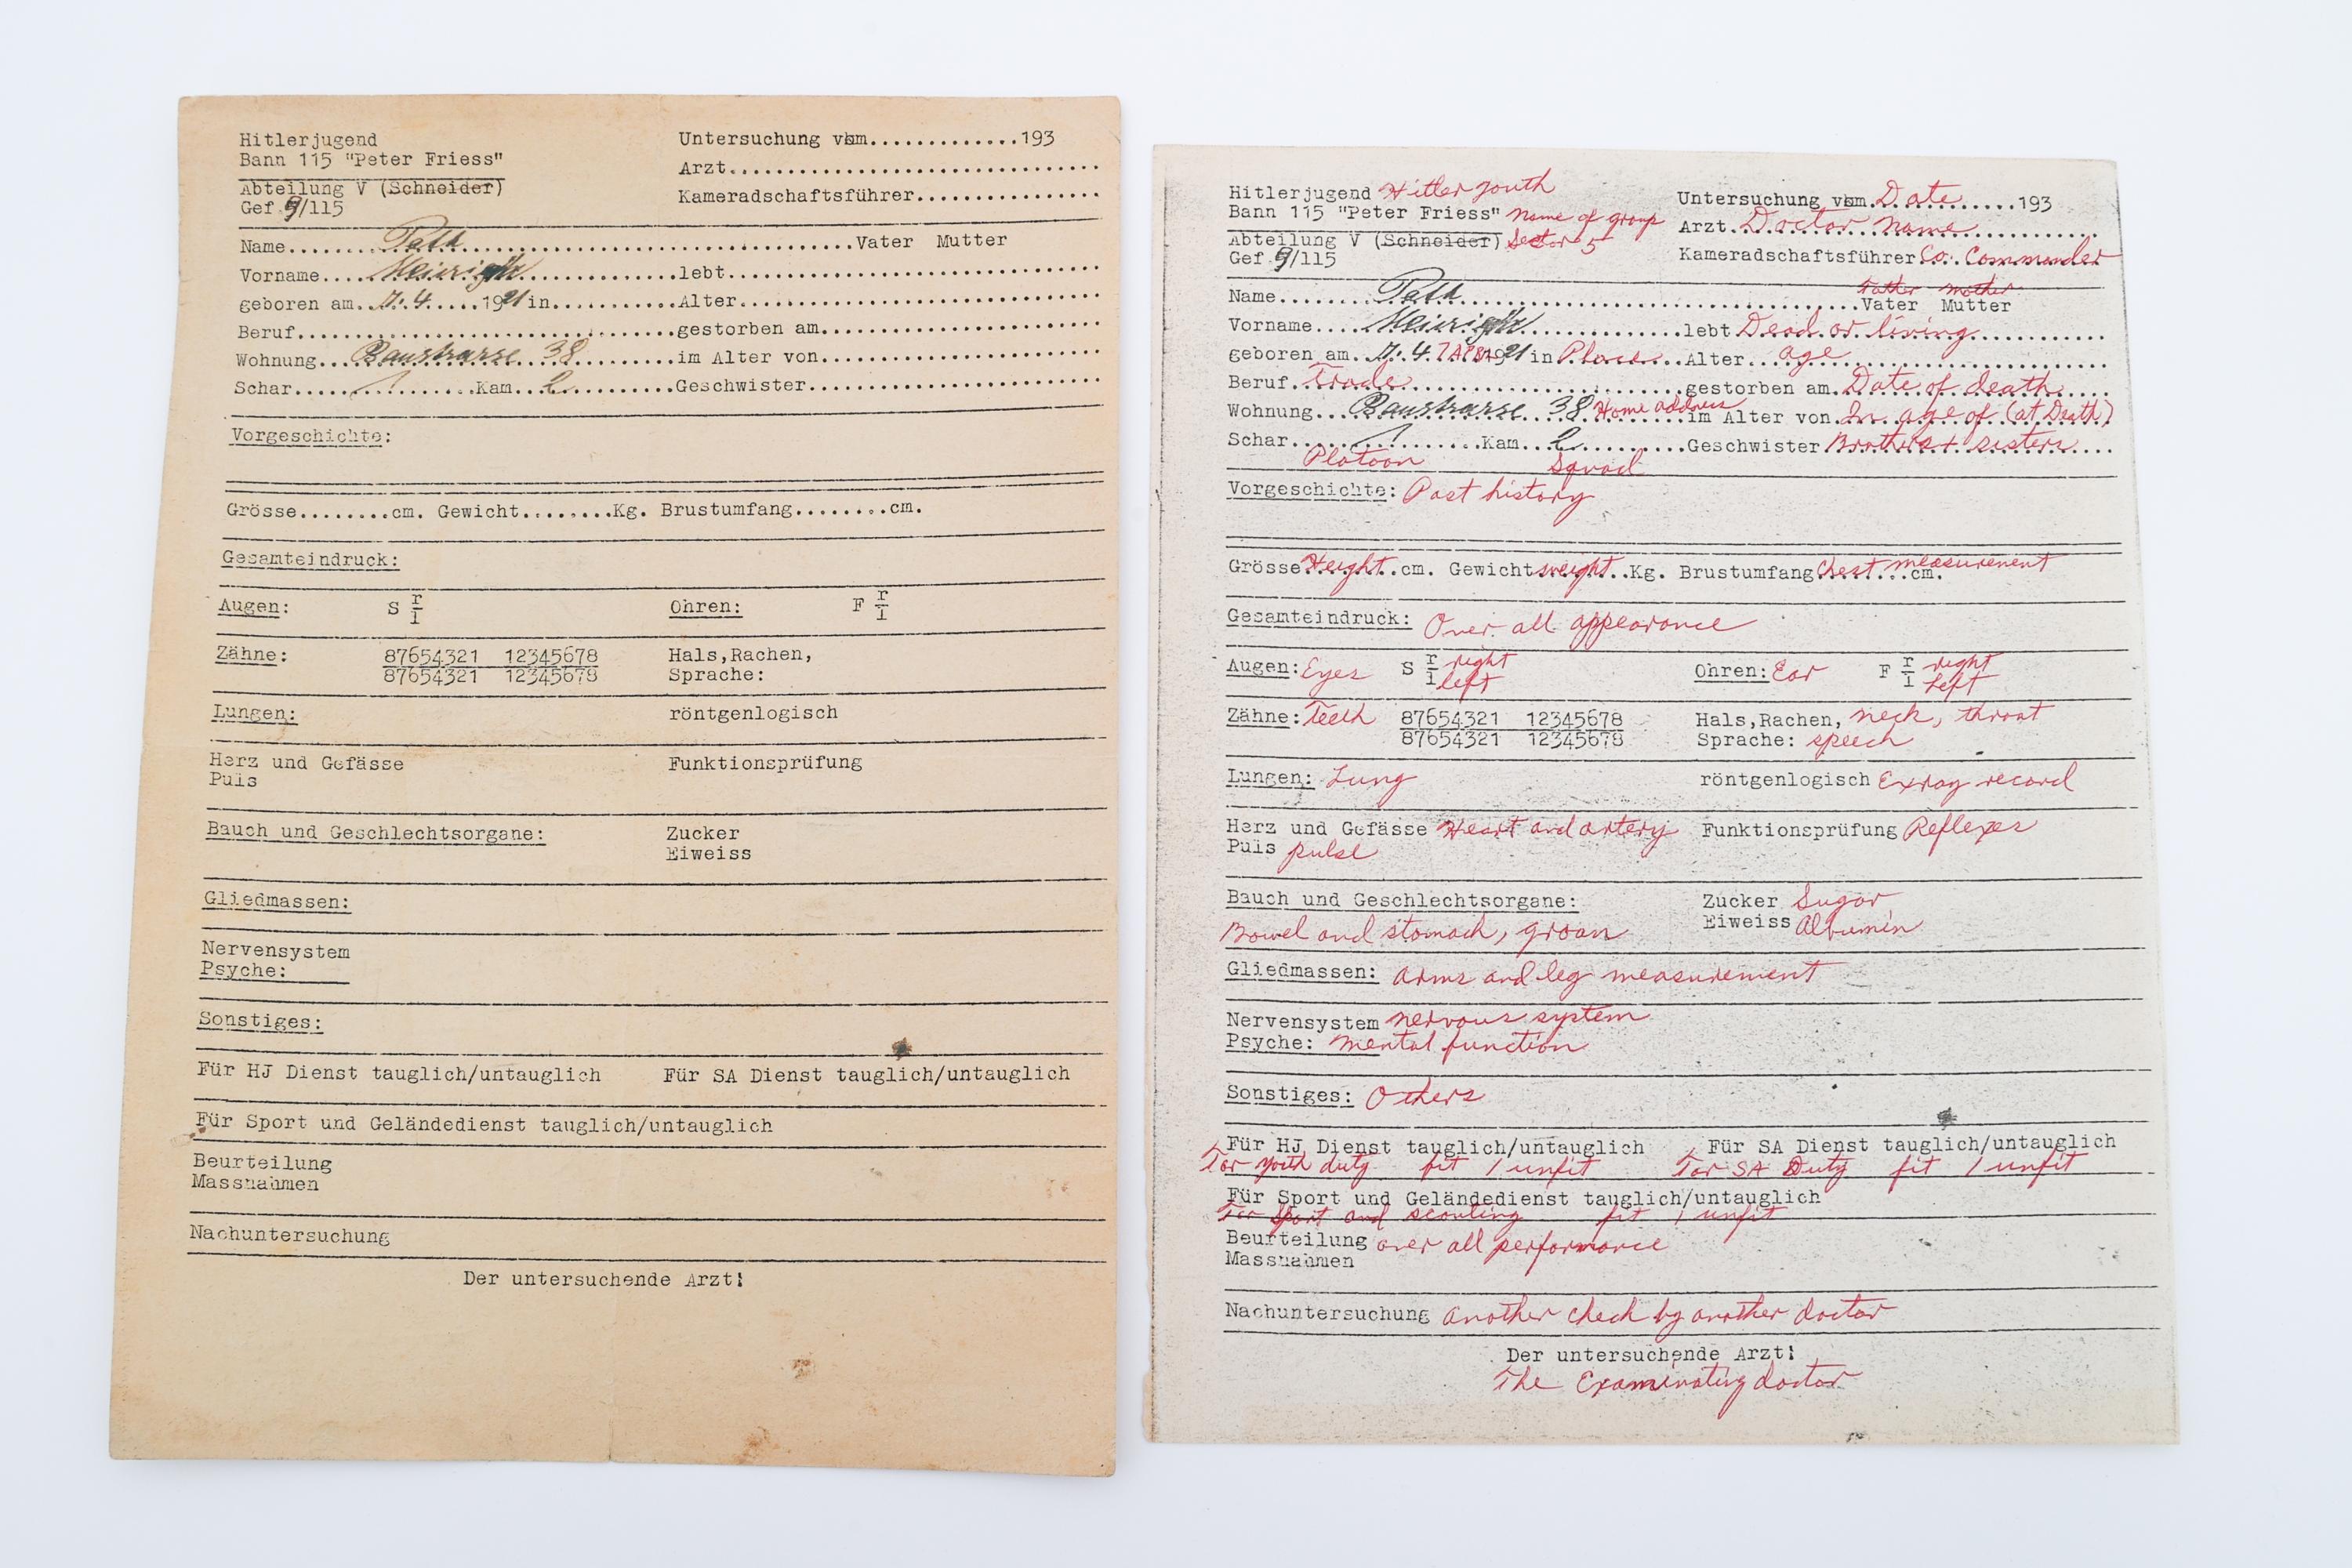 Hitlerjugend
Bann 115 "Peter Friess"
Abteilung V (Schneider)
Gef 9/115
Untersuchung vom.............193
Arzt
Kameradschaftsführer
Name........................Vater Mutter
Vorname....................lebt
geboren am. 7. 4.....1921 in...........Alter
Beruf....................gestorben am
Wohnung... Baustrasse 38.........im Alter von
Schar.... 1 .....Kam.. 2 .........Geschwister
Vorgeschichte:
Grösse........cm. Gewicht........Kg. Brustumfang........cm.
Gesamteindruck:
Augen: S r/l Ohren: F r/l
Zähne: 87654321 12345678 Hals,Rachen,
87654321 12345678 Sprache:
Lungen: röntgenlogisch
Herz und Gefässe Funktionsprüfung
Puls
Bauch und Geschlechtsorgane: Zucker
Eiweiss
Gliedmassen:
Nervensystem
Psyche:
Sonstiges:
Für HJ Dienst tauglich/untauglich Für SA Dienst tauglich/untauglich
Für Sport und Geländedienst tauglich/untauglich
Beurteilung
Massnahmen
Nachuntersuchung
Der untersuchende Arzt!
Hitlerjugend Hitler youth
Bann 115 "Peter Friess" Name of group
Abteilung V (Schneider) Sector 5
Gef 9/115
Untersuchung vom. Date..........193
Arzt. Doctor name
Kameradschaftsführer Co. Commander
Father mother
Name........................Vater Mutter
Vorname....................lebt Dead or living
geboren am. 7. 4. 7 APR 1921 in Place...Alter. age
Beruf. Trade....................gestorben am. Date of death
Wohnung... Baustrasse 38 Home address im Alter von. In age of (at Death)
Schar.... 1 .....Kam.. 2 .........Geschwister Brothers + sisters
Platoon Squad
Vorgeschichte: Past history
Grösse Height..cm. Gewicht weight..Kg. Brustumfang Chest measurement cm.
Gesamteindruck: Over all appearance
Augen: Eyes S r/l right left Ohren: Ear F r/l right left
Zähne: Teeth 87654321 12345678 Hals,Rachen, neck, throat
87654321 12345678 Sprache: speech
Lungen: Lung röntgenlogisch Exray record
Herz und Gefässe Heart and artery Funktionsprüfung Reflexes
Puls pulse
Bauch und Geschlechtsorgane: Zucker Sugar
Bowel and stomach, groan Eiweiss Albumin
Gliedmassen: arms and leg measurement
Nervensystem nervous system
Psyche: mental function
Sonstiges: Others
Für HJ Dienst tauglich/untauglich Für SA Dienst tauglich/untauglich
For youth duty fit / unfit For SA Duty fit / unfit
Für Sport und Geländedienst tauglich/untauglich
For Sport and scouting fit / unfit
Beurteilung over all performance
Massnahmen
Nachuntersuchung another check by another doctor
Der untersuchende Arzt!
The Examinating doctor